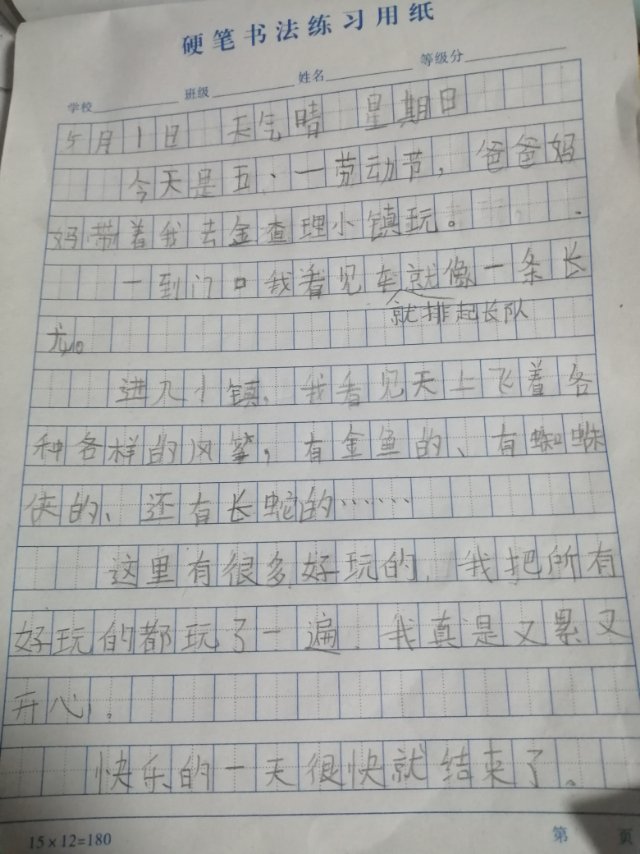 硬笔书法练习用纸
学校 班级 姓名 等级分
5月1日 天气晴 星期日
今天是五·一劳动节，爸爸妈
妈带着我去金查理小镇玩。
一到门口我看见车就像一条长
就排起长队
龙。
进入小镇，我看见天上飞着各
种各样的风筝，有金鱼的、有蜘蛛
侠的、还有长蛇的……
这里有很多好玩的，我把所有
好玩的都玩了一遍，我真是又累又
开心。
快乐的一天很快就结束了。
15×12=180 第 页